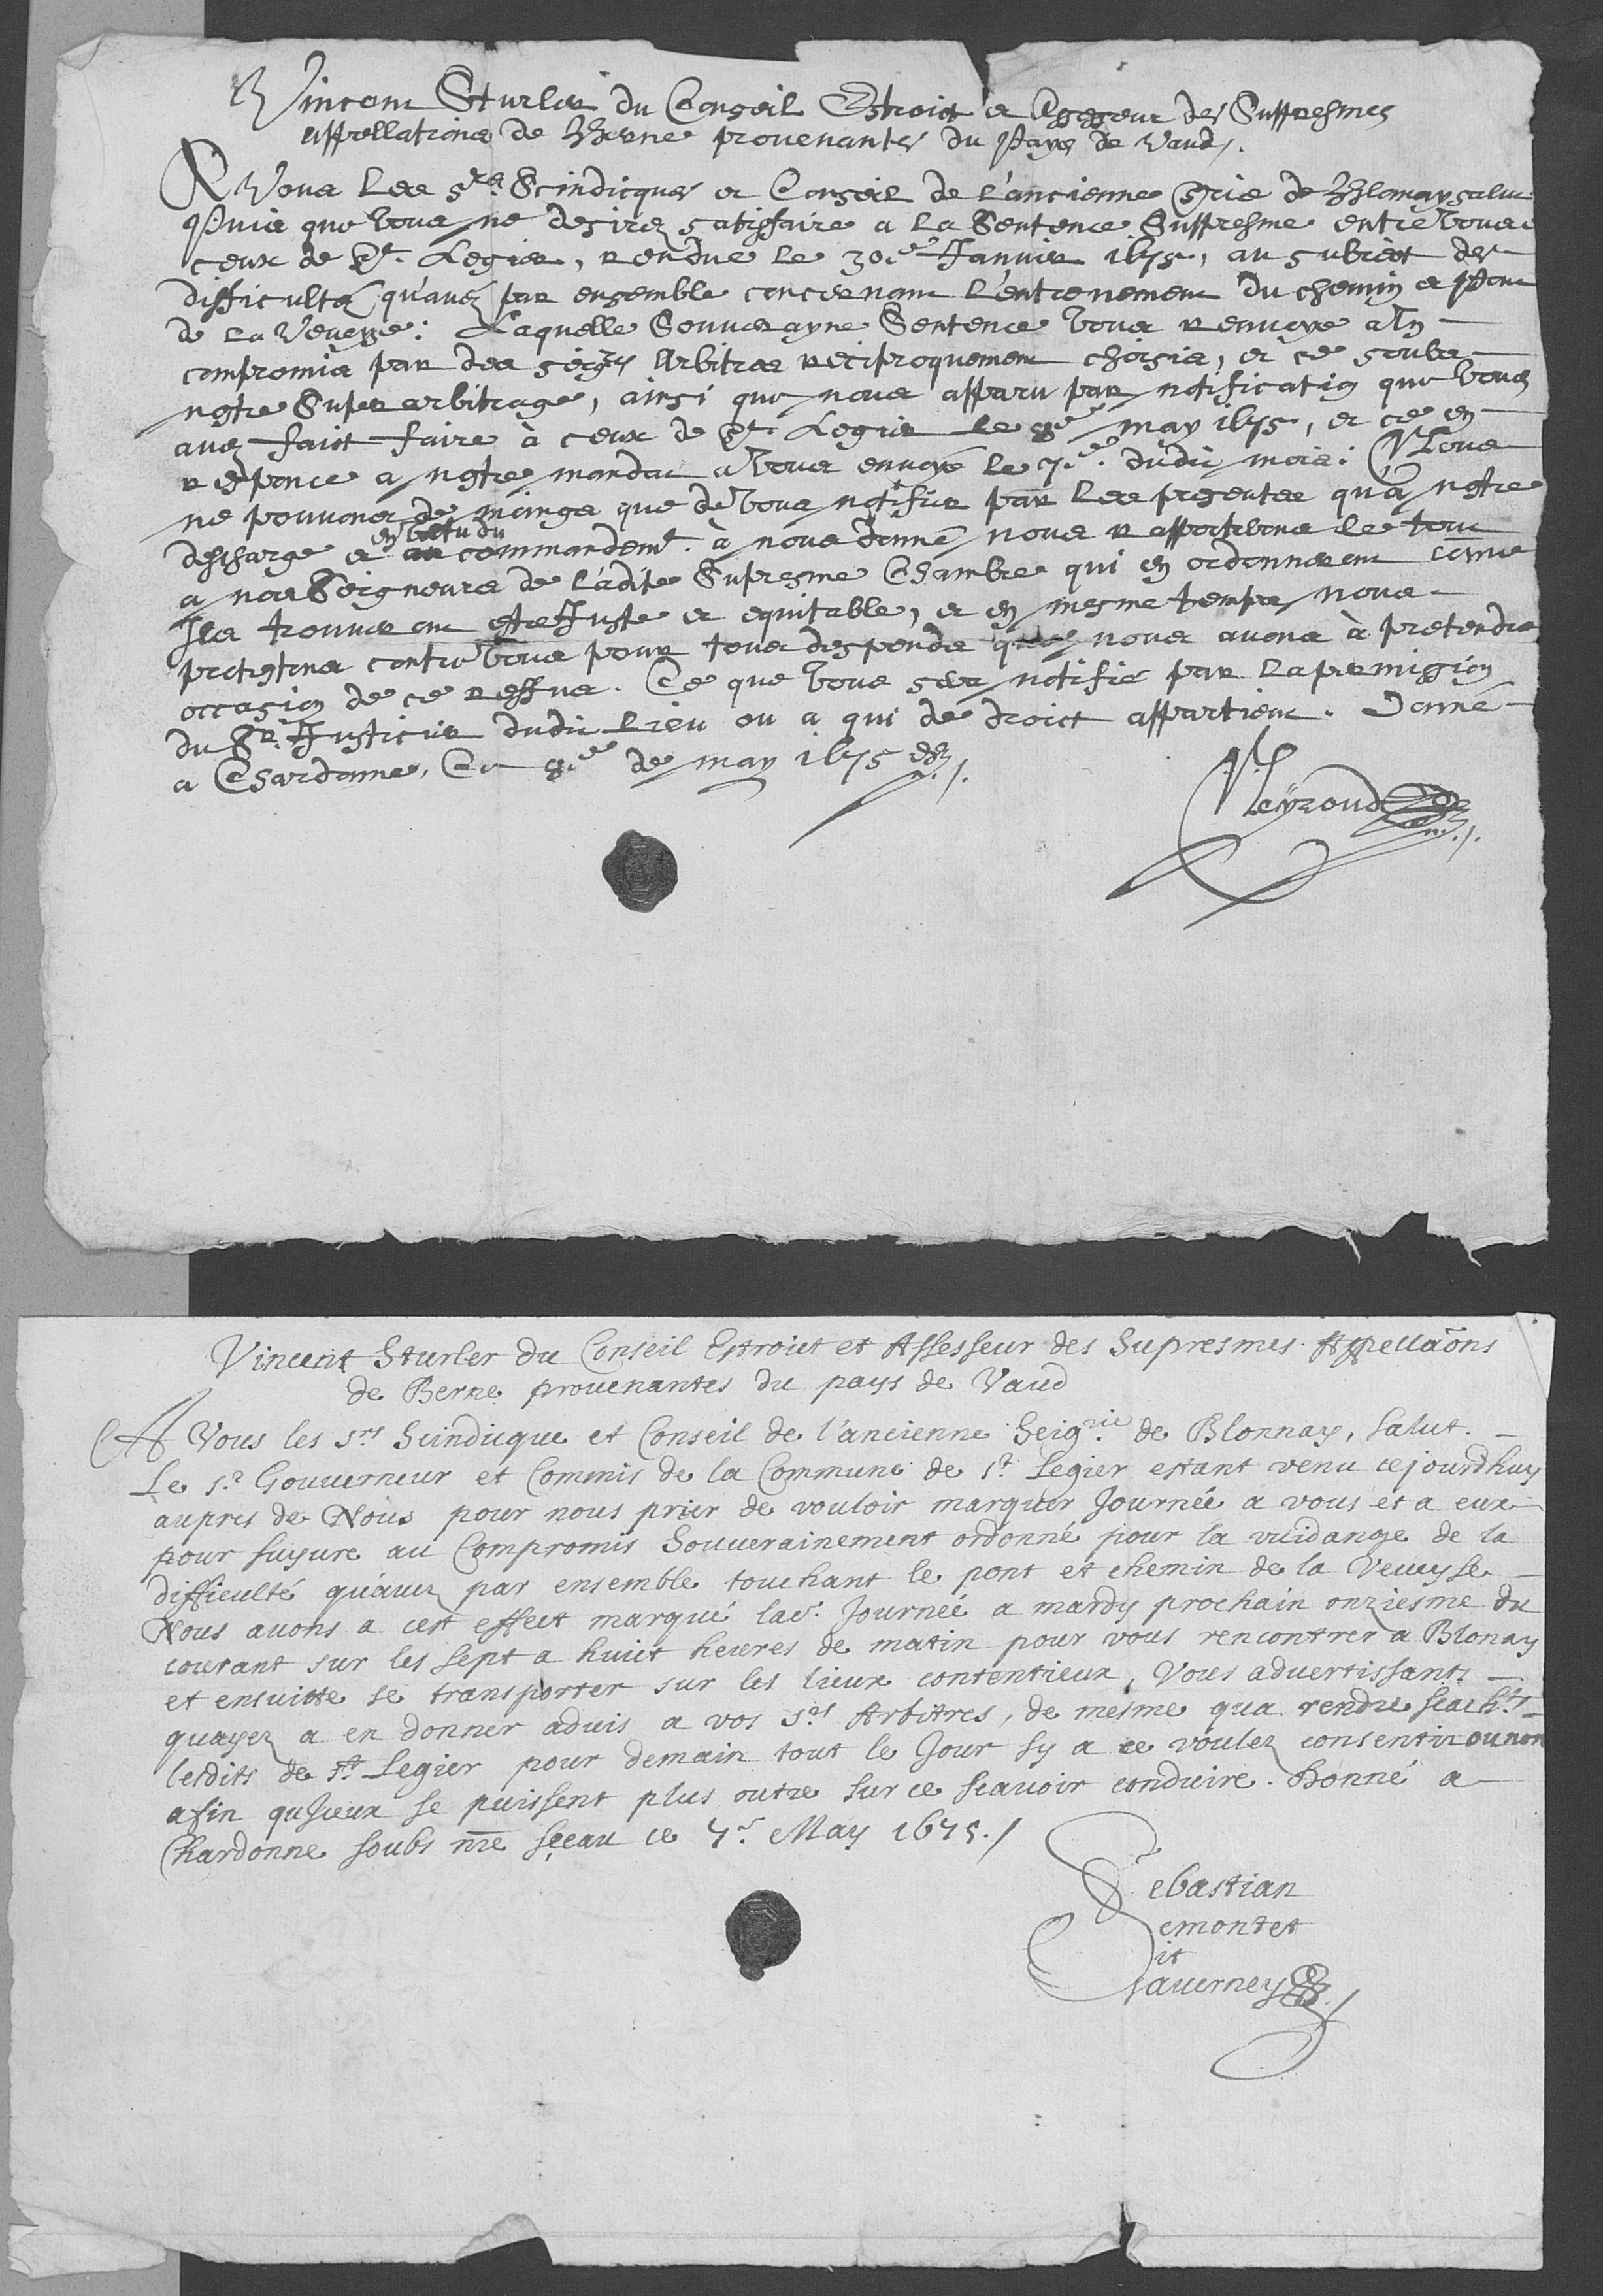 Vincent Sturler du Conseil Estroict et Assesseur des Suppresmes
appellations de Berne provenantes du Pays de Vaud.
A Vous Les Srs Scindicques et Conseil de l'ancienne Srie de Blonay salut
Puis que vous ne desirez satisfaire a la Sentence Suppresme entre vous et
ceux de St. Legier, rendue le 30e Janvier 1675, au subiect des
difficultez qu'avez par ensemble concernant L'entrenement du chemin et Pont
de La Veveyse: Laquelle Souverayne Sentence vous renvoye a un
compromis par des seigrs Arbitres reciproquement choisis, et ce soubs
nostre Superarbitrage, ainsi que nous apparu par notification que vous
avez faict faire à ceux de St. Legier le 8e may 1675, et ce en
responce a nostre mandat a vous envoyé le 7e. dudit mois: Nous
ne pouvons de moings que de vous notifier par les presentes qu'a nostre
descharge et en vertu du commandemt. à nous donné nous rapporterons le tout
a nos Seigneurs de l'adite Supresme Chambre qui en ordonneront come
Ils trouveront estre Juste et equitable, et en mesme temps nous
protestons contre vous pour tous despends que nous avons à pretendre
occasion de ce reffus. Ce que vous sera notifié par la permission
du Sr. Justicier dudit Lieu ou a qui de droict appartient. Donné
a Chardonne, Ce 8e de may 1675.
Neyroud
Vincent Sturler du Conseil Estroict et Assesseur des Supresmes Appellaōns
de Berne provenantes du pays de Vaud
A Vous les Srs Scindicque et Conseil de l'ancienne Seigrie. de Blonnay, salut.
Le Sr Gouverneur et Commis de la Commune de St Legier estant venu cejourdhuy
aupres de Nous pour nous prier de vouloir marquer Journée a vous et a eux
pour suyvre au Compromis Souverainement ordonné pour la vuidange de la
difficulté qu'avez par ensemble touchant le pont et chemin de la Veveyse
Nous avons a cest effect marqué lad. Journée a mardy prochain onziesme du
courant sur les sept a huict heures de matin pour vous rencontrer a Blonay
et ensuitte se transporter sur les lieux contentieux, Vous advertissants
quayez a en donner advis a vos Srs Arbitres, de mesme qua rendre scachts
lesdits de St Legier pour demain tout le Jour sy a ce voulez consentir ou non
afin qu'Jceux se puissent plus outre sur ce scavoir conduire. Donné a
Chardonne soubs nre sceau ce 7e May 1675./
Sebastian
Demontet
dit
Taverney